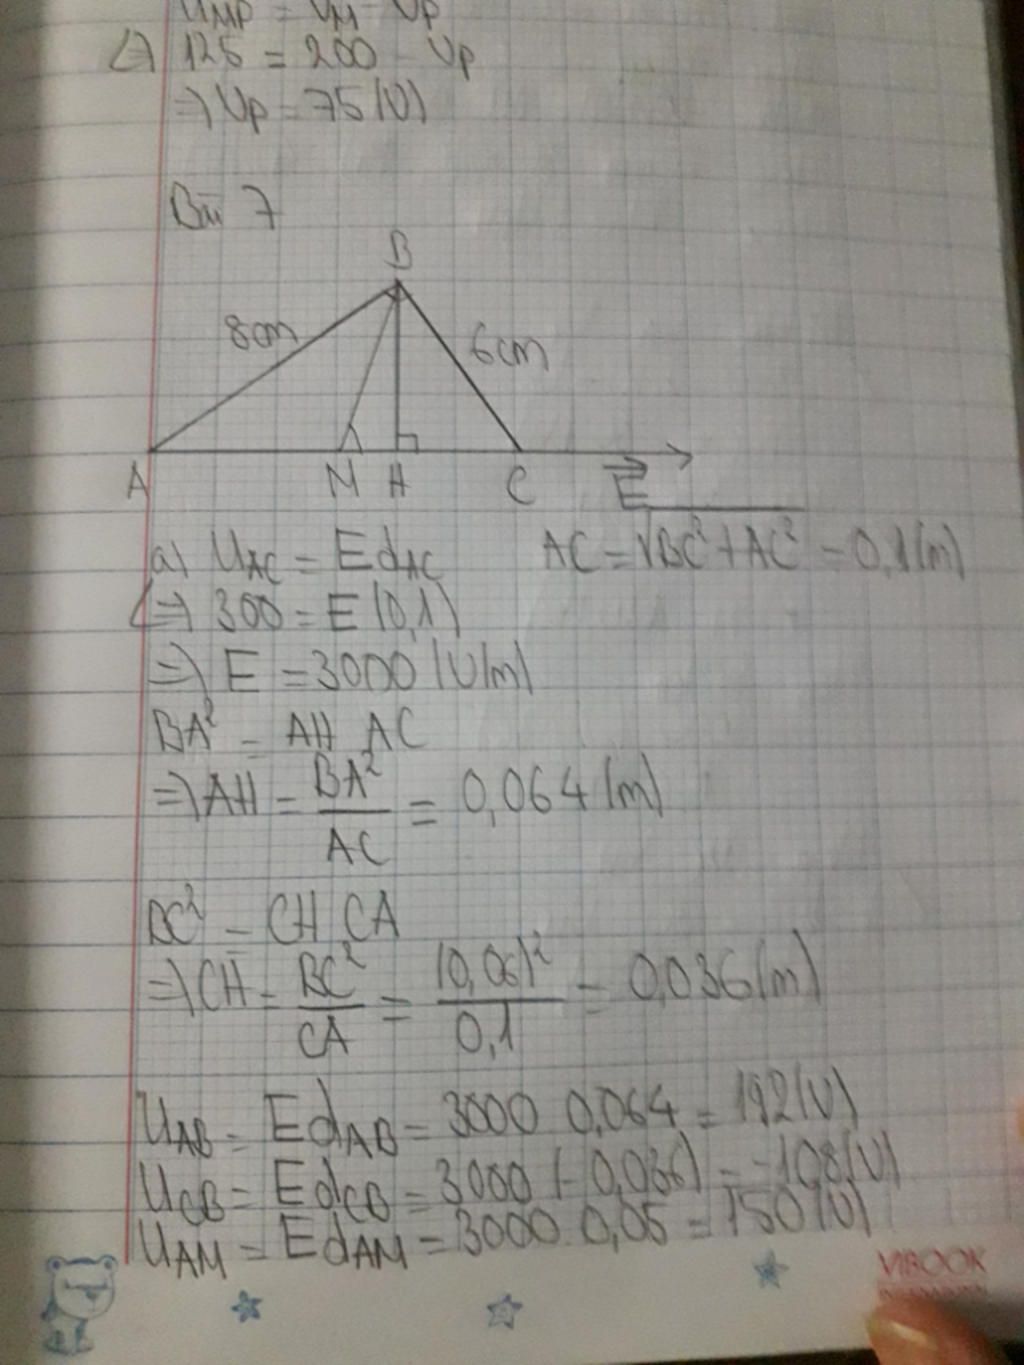 U_MP = V_M - V_P
<=> 125 = 200 - V_P
=> V_P = 75 (V)
Bài 7
B
8cm
6cm
A M H C E→
a) U_AC = E d_AC AC = √BC² + AC² = 0,1 (m)
<=> 300 = E (0,1)
=> E = 3000 (V/m)
BA² = AH AC
=> AH = BA²/AC = 0,064 (m)
BC² = CH CA
=> CH = BC²/CA = (0,06)²/0,1 = 0,036 (m)
U_AB = E d_AB = 3000 0,064 = 192 (V)
U_CB = E d_CB = 3000 (-0,036) = -108 (V)
U_AM = E d_AM = 3000 0,05 = 150 (V)
VIBOOK